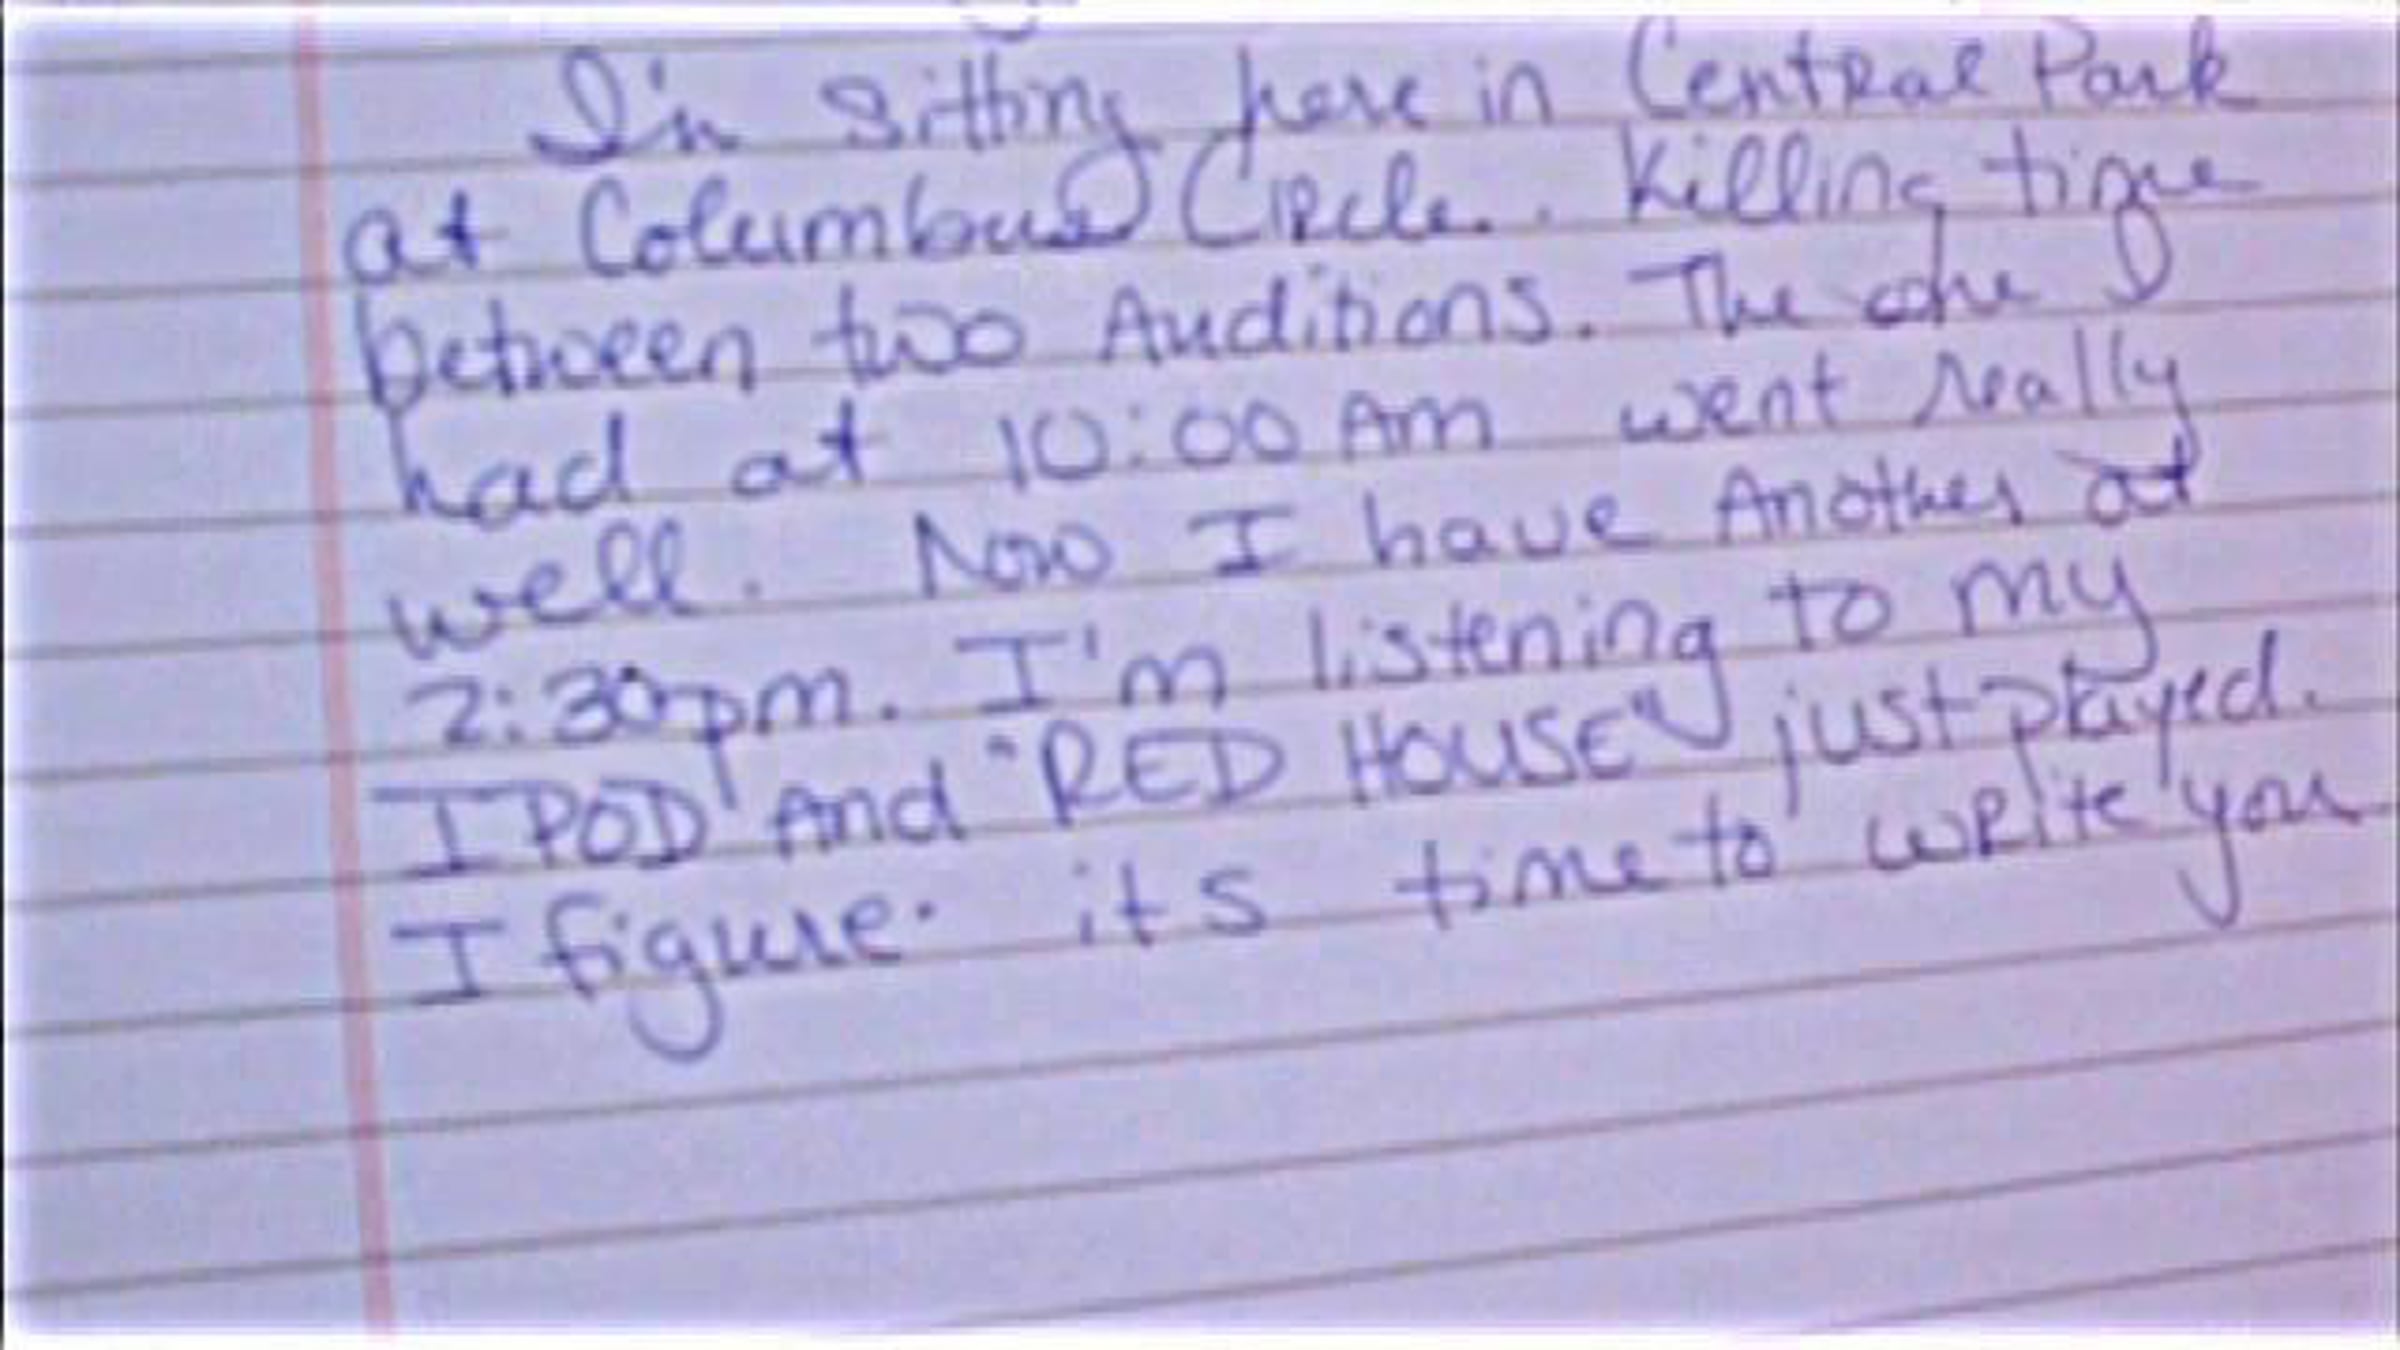 I'm sitting here in Central Park
at Columbus Circle. Killing time
between two Auditions. The one I
had at 10:00 Am went really
well. Now I have Another at
2:30pm. I'm listening to my
IPOD And "RED HOUSE" just played.
I figure. its time to write you